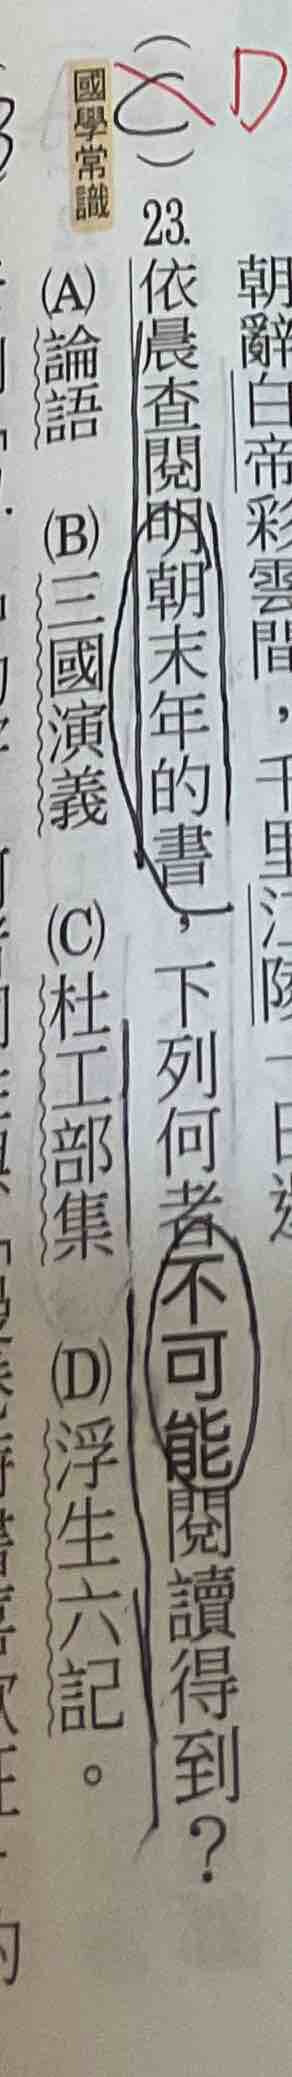 朝辭白帝彩雲間，千里江陵一日
D
(C)
23.依晨查閱明朝末年的書，下列何者不可能閱讀得到？
國學常識
(A)論語 (B)三國演義 (C)杜工部集 (D)浮生六記。